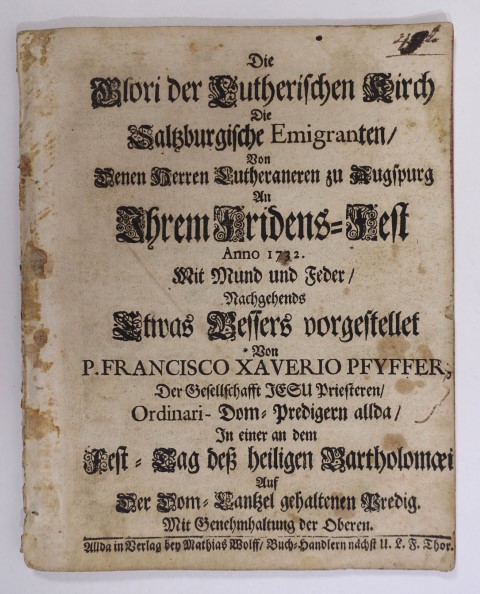 Die
Glori der Lutherischen Kirch
Die
Saltzburgische Emigranten/
Von
Denen Herren Lutheraneren zu Augspurg
An
Ihrem Fridens-Fest
Anno 1732.
Mit Mund und Feder/
Nachgehends
Etwas Bessers vorgestellet
Von
P. FRANCISCO XAVERIO PFYFFER,
Der Gesellschafft JESU Priesteren/
Ordinari-Dom-Predigern allda/
In einer an dem
Fest-Tag deß heiligen Bartholomæi
Auf
Der Dom-Cantzel gehaltenen Predig.
Mit Genehmhaltung der Oberen.
Allda in Verlag bey Mathias Wolff/ Buch-Handlern nächst U. L. F. Thor.